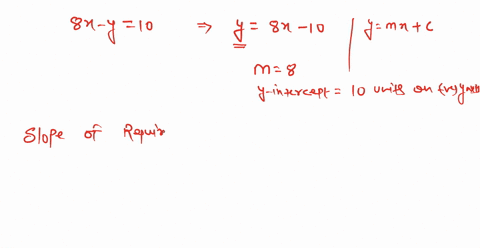 8x-y=10 ⇒ y = 8x-10 | y=mx+c
m=8
y-intercept = 10 units on (-ve) y axis
Slope of Requir